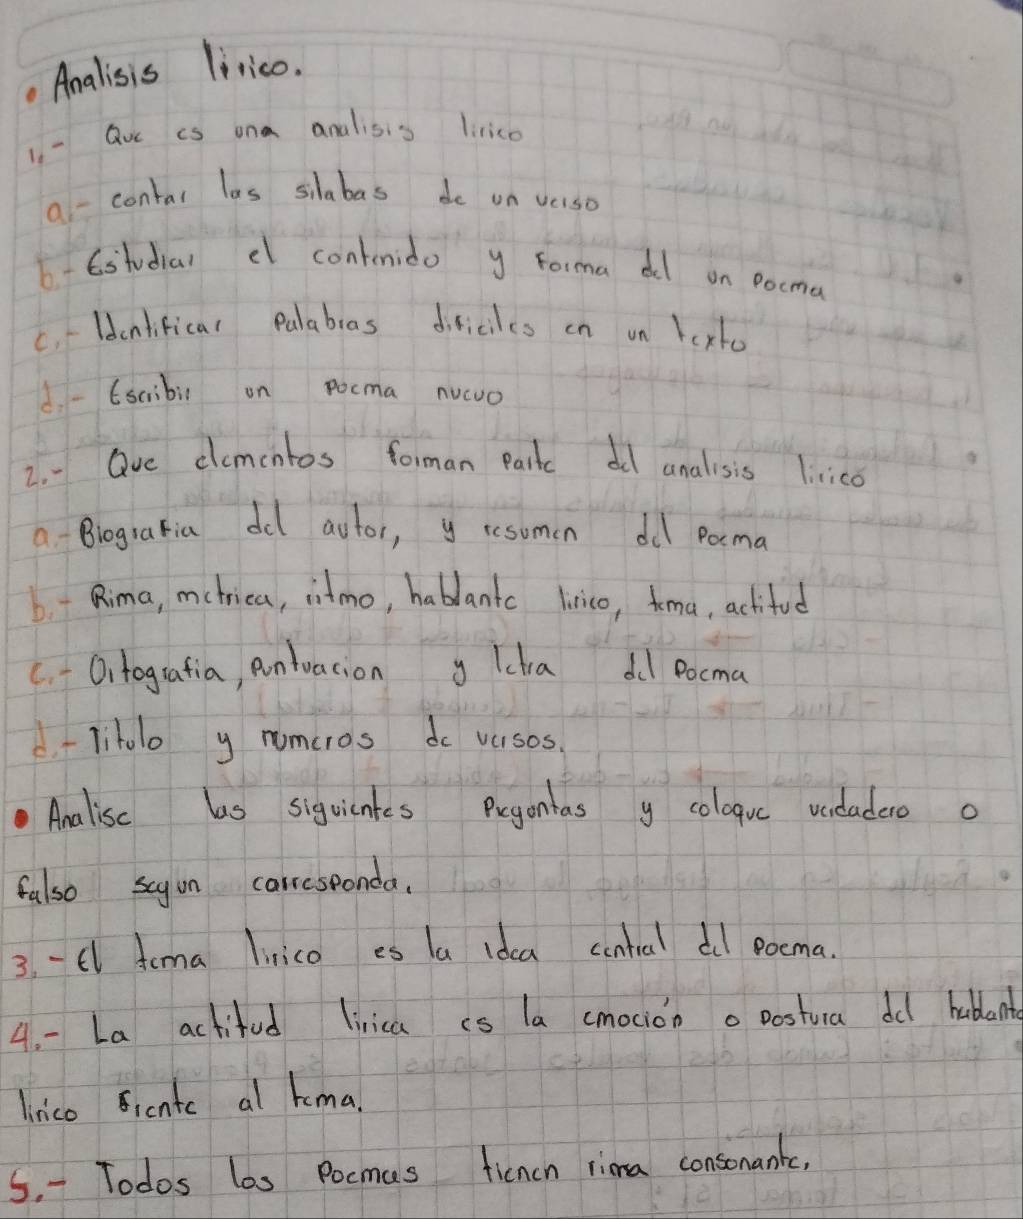 • Analisis lirico.
1.- Que es una analisis lirico
a.- contar las silabas de un verso
b.- Estudiar el contenido y forma del un poema
c.- Identificar palabras dificiles en un texto
d.- Escribir un poema nuevo
2.- Que elementos forman parte del analisis lirico
a.- Biografia del autor, y resumen del poema
b.- Rima, metrica, ritmo, hablante lirico, tema, actitud
c.- Ortografia, puntuacion y letra del poema
d.- Titulo y numeros de versos.
• Analise las siguientes preguntas y coloque verdadero o
falso segun corresponda.
3.- El tema lirico es la idea central del poema.
4.- La actitud lirica es la emoción o postura del hablante
lirico frente al tema.
5.- Todos los poemas tienen rima consonante,